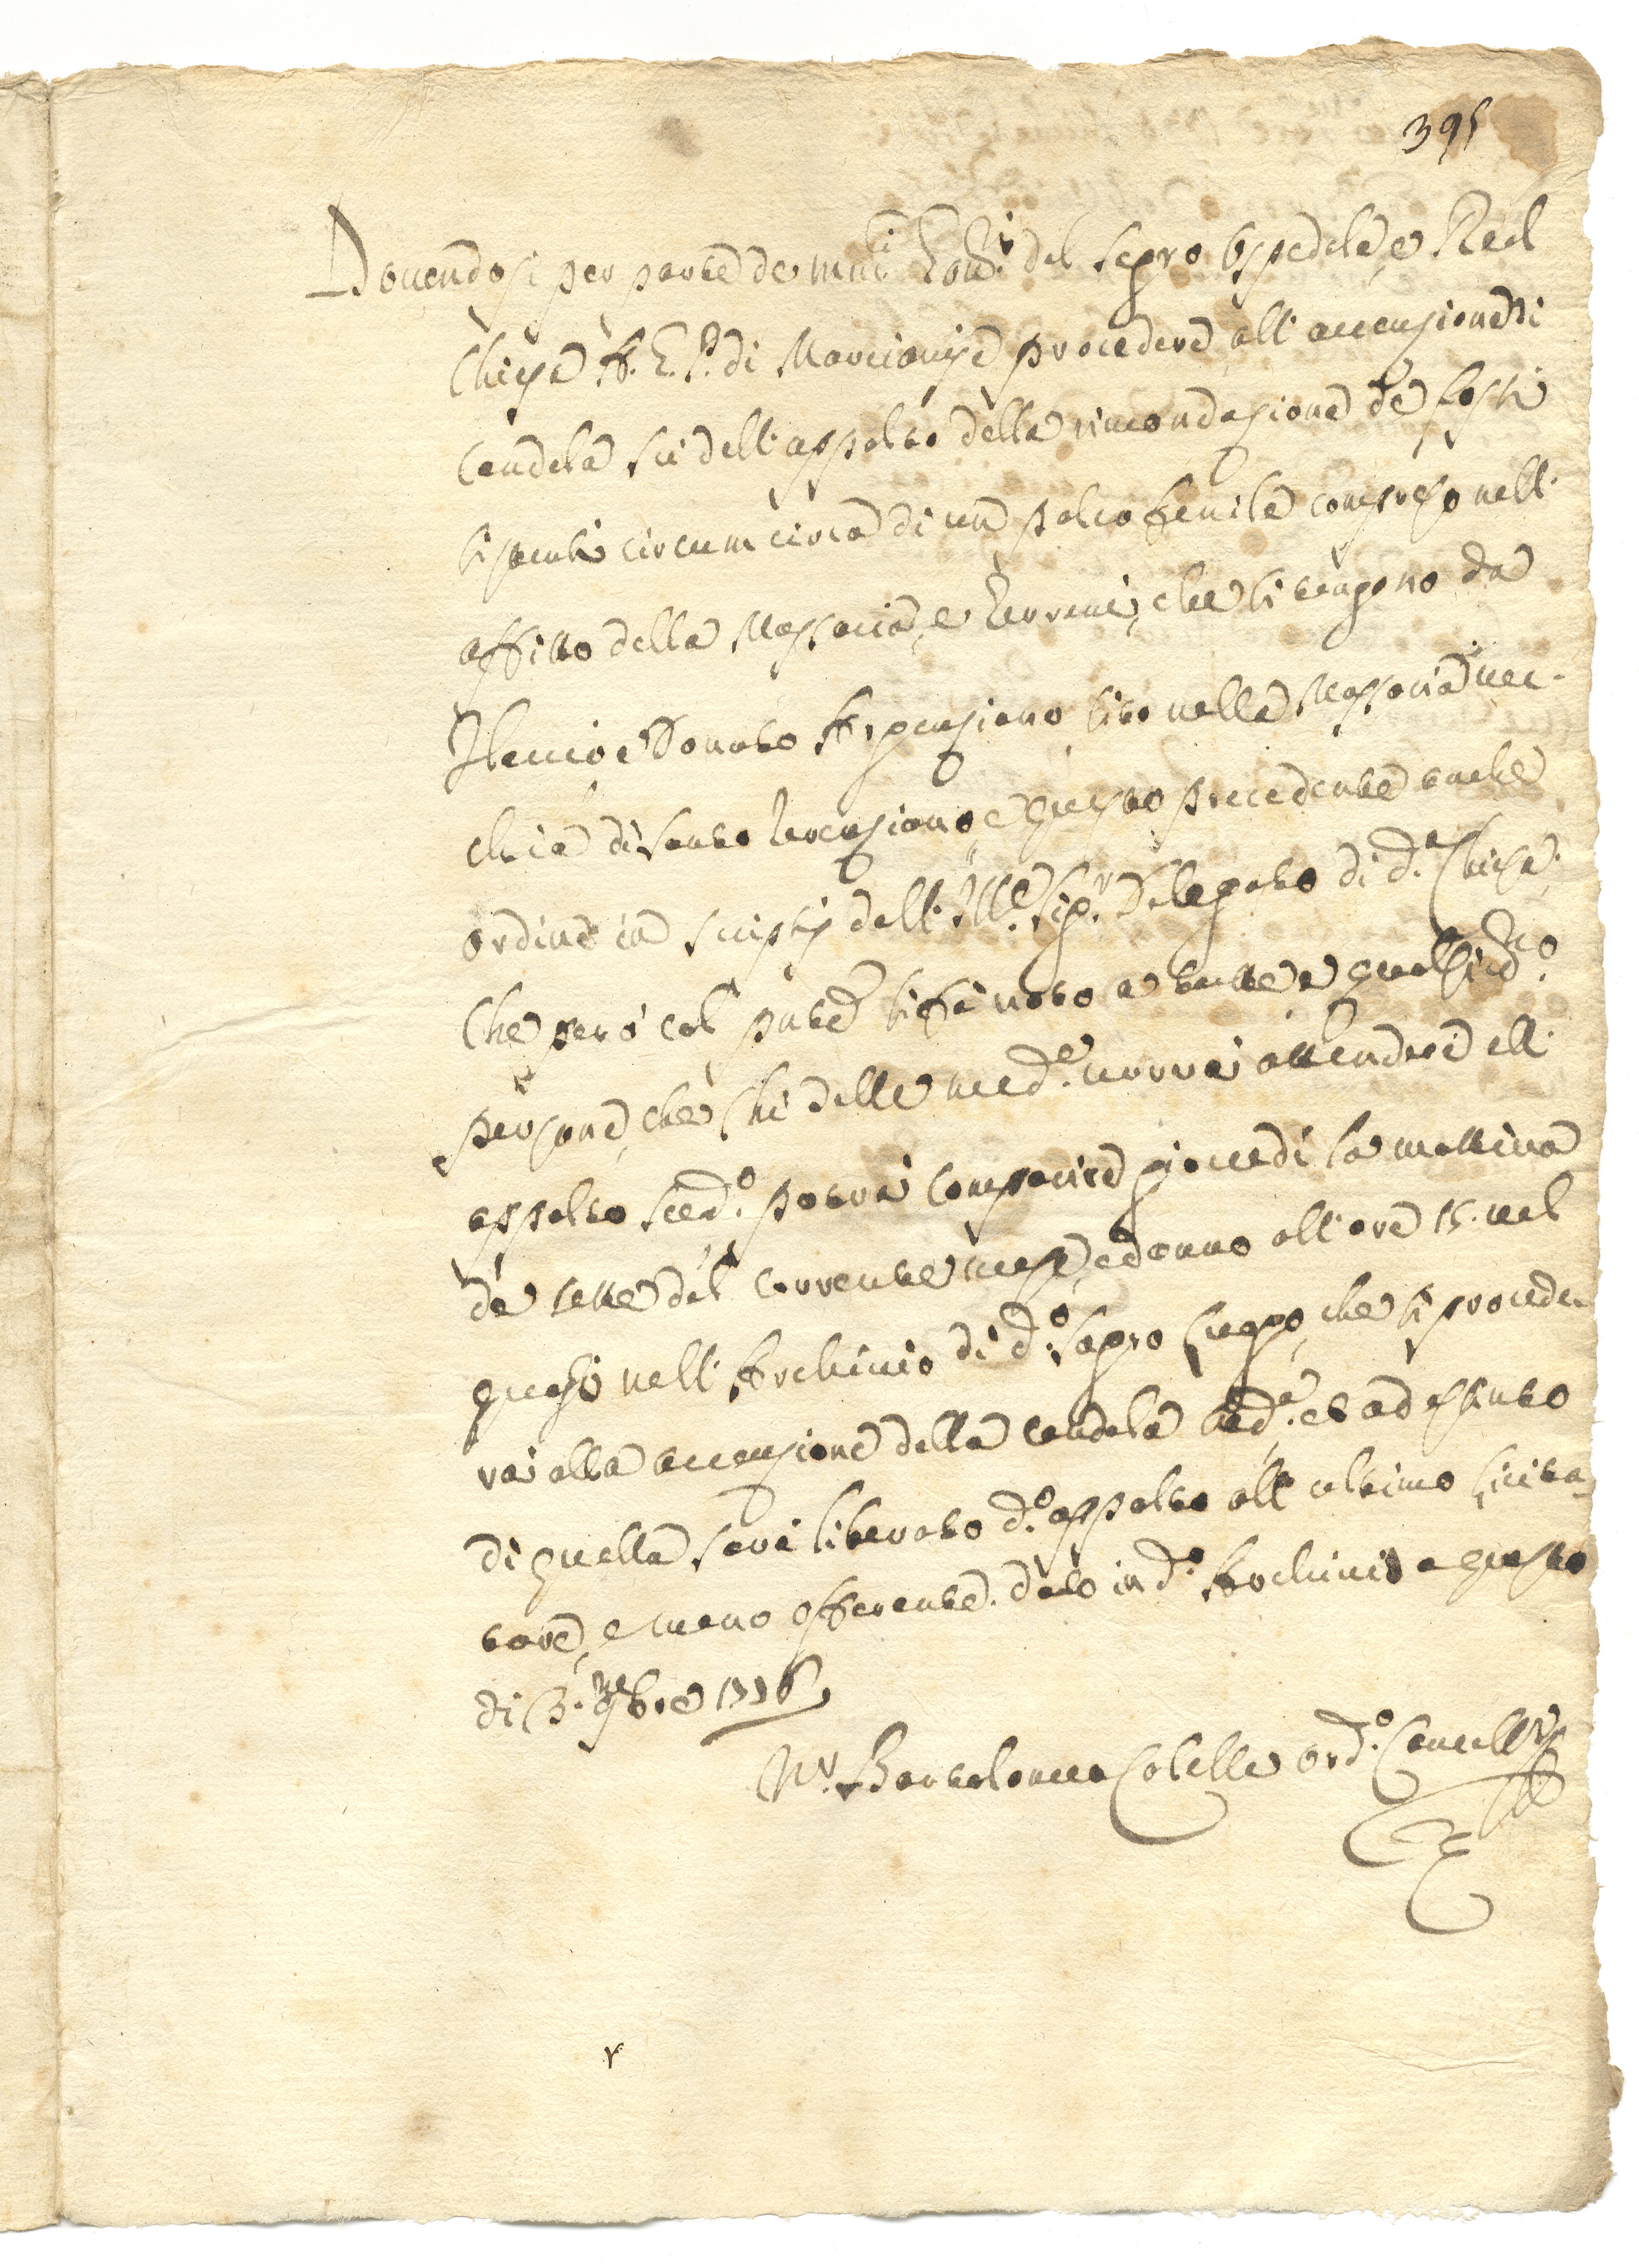 395
Dovendosi per parte de mñci Gov.ri del Sagro Ospedale, e Real
Chiesa A. G. P. di Marcianise procedere all' accensione di
candela sù dell' appalto della rimondazione de fossi
sistenti circum circa di un palco fenile compreso nell'
affitto della Massaria, e Terreni, che si tengono da
e Donato Arpensiano sito nella Massaria vec-
chia di Santo e questo precedente anche
ordine in scriptis dell' Ill.e Sig.r Delegato di d.a Chiesa.
Che però col pnte si fà noto a tutte e qualsiano
persone, che chi delle med.e vorrà attendere all'
appalto sud.o potrà comparire giovedì la mattina
de sette del corrente mese, ed anno all' ore 15. nel
quasi nell' Archivio di d.o Sagro Luogo, che si procede-
rà alla accensione della candela sud.a, et ad estinto
di quella sarà liberato d.o appalto all' ultimo licita-
tore, e meno offerente. dato in d.o Archivio a questo
dì 3. 9bre 1776
N.r Bartolomeo Colella ord.o Cancell.re